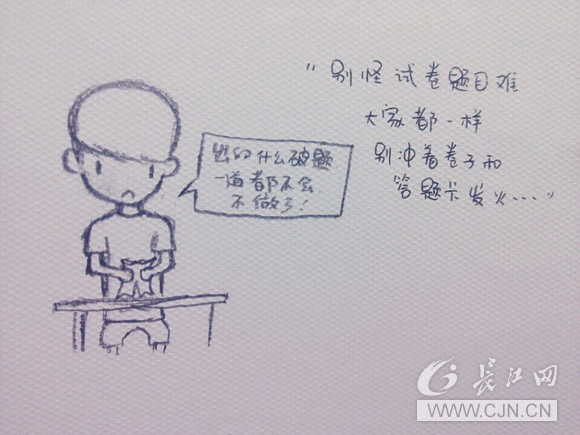 出的什么破题
一道都不会
不做了！
“别怪试卷题目难
大家都一样
别冲着卷子和
答题卡发火……”
长江网
WWW.CJN.CN